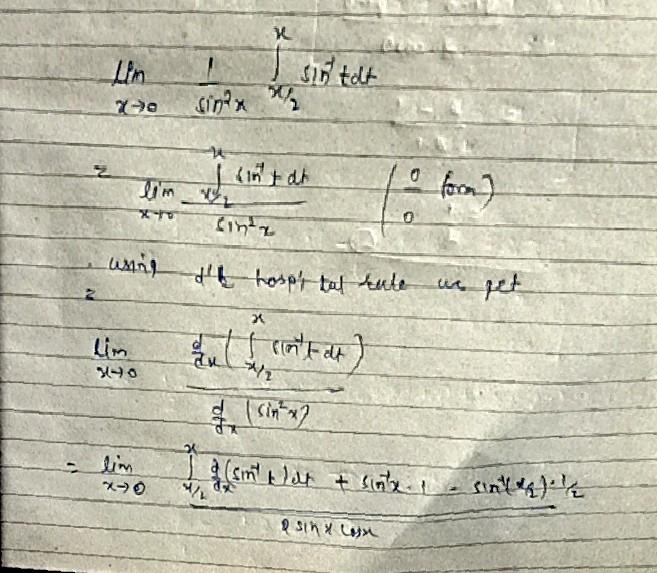 lim x→0 1/sin²x ∫_{x/2}^{x} sin⁻¹t dt
= lim x→0 ∫_{x/2}^{x} sin⁻¹t dt / sin²x (0/0 form)
using d'L hospital rule we get
= lim x→0 d/dx (∫_{x/2}^{x} sin⁻¹t dt) / d/dx (sin²x)
= lim x→0 ∫_{x/2}^{x} d/dx (sin⁻¹t) dt + sin⁻¹x · 1 - sin⁻¹(x/2) · 1/2 / 2 sin x cos x